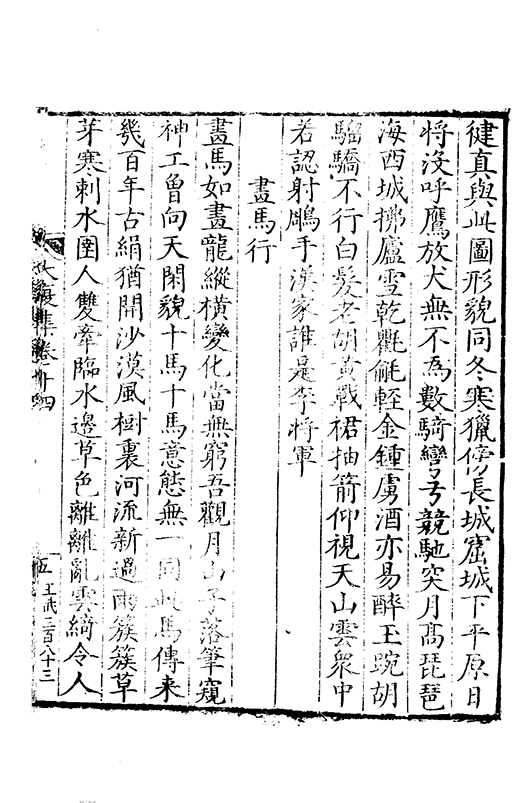 健真與此圖形貌同冬寒獵傍長城窟城下平原日
将没呼鷹放犬無不為數騎彎弓競馳突月髙琵琶
海西城拂廬雪乾氍毹輕金鍾虜酒亦易醉玉踠胡
騮驕不行白髮老胡黄戰裙抽箭仰視天山雲衆中
若認射鵰手漢家誰是李將軍
畫馬行
畫馬如畫龍縱横變化當無窮吾觀月山子落筆窺
神工曽向天閑貌十馬十馬意態無一同此馬傳来
幾百年古絹猶開沙漠風樹裏河流新過雨簇簇草
芽寒刺水圉人雙牽臨水邊草色離離亂雲綺令人
集卷十四
五
王 三百八十三